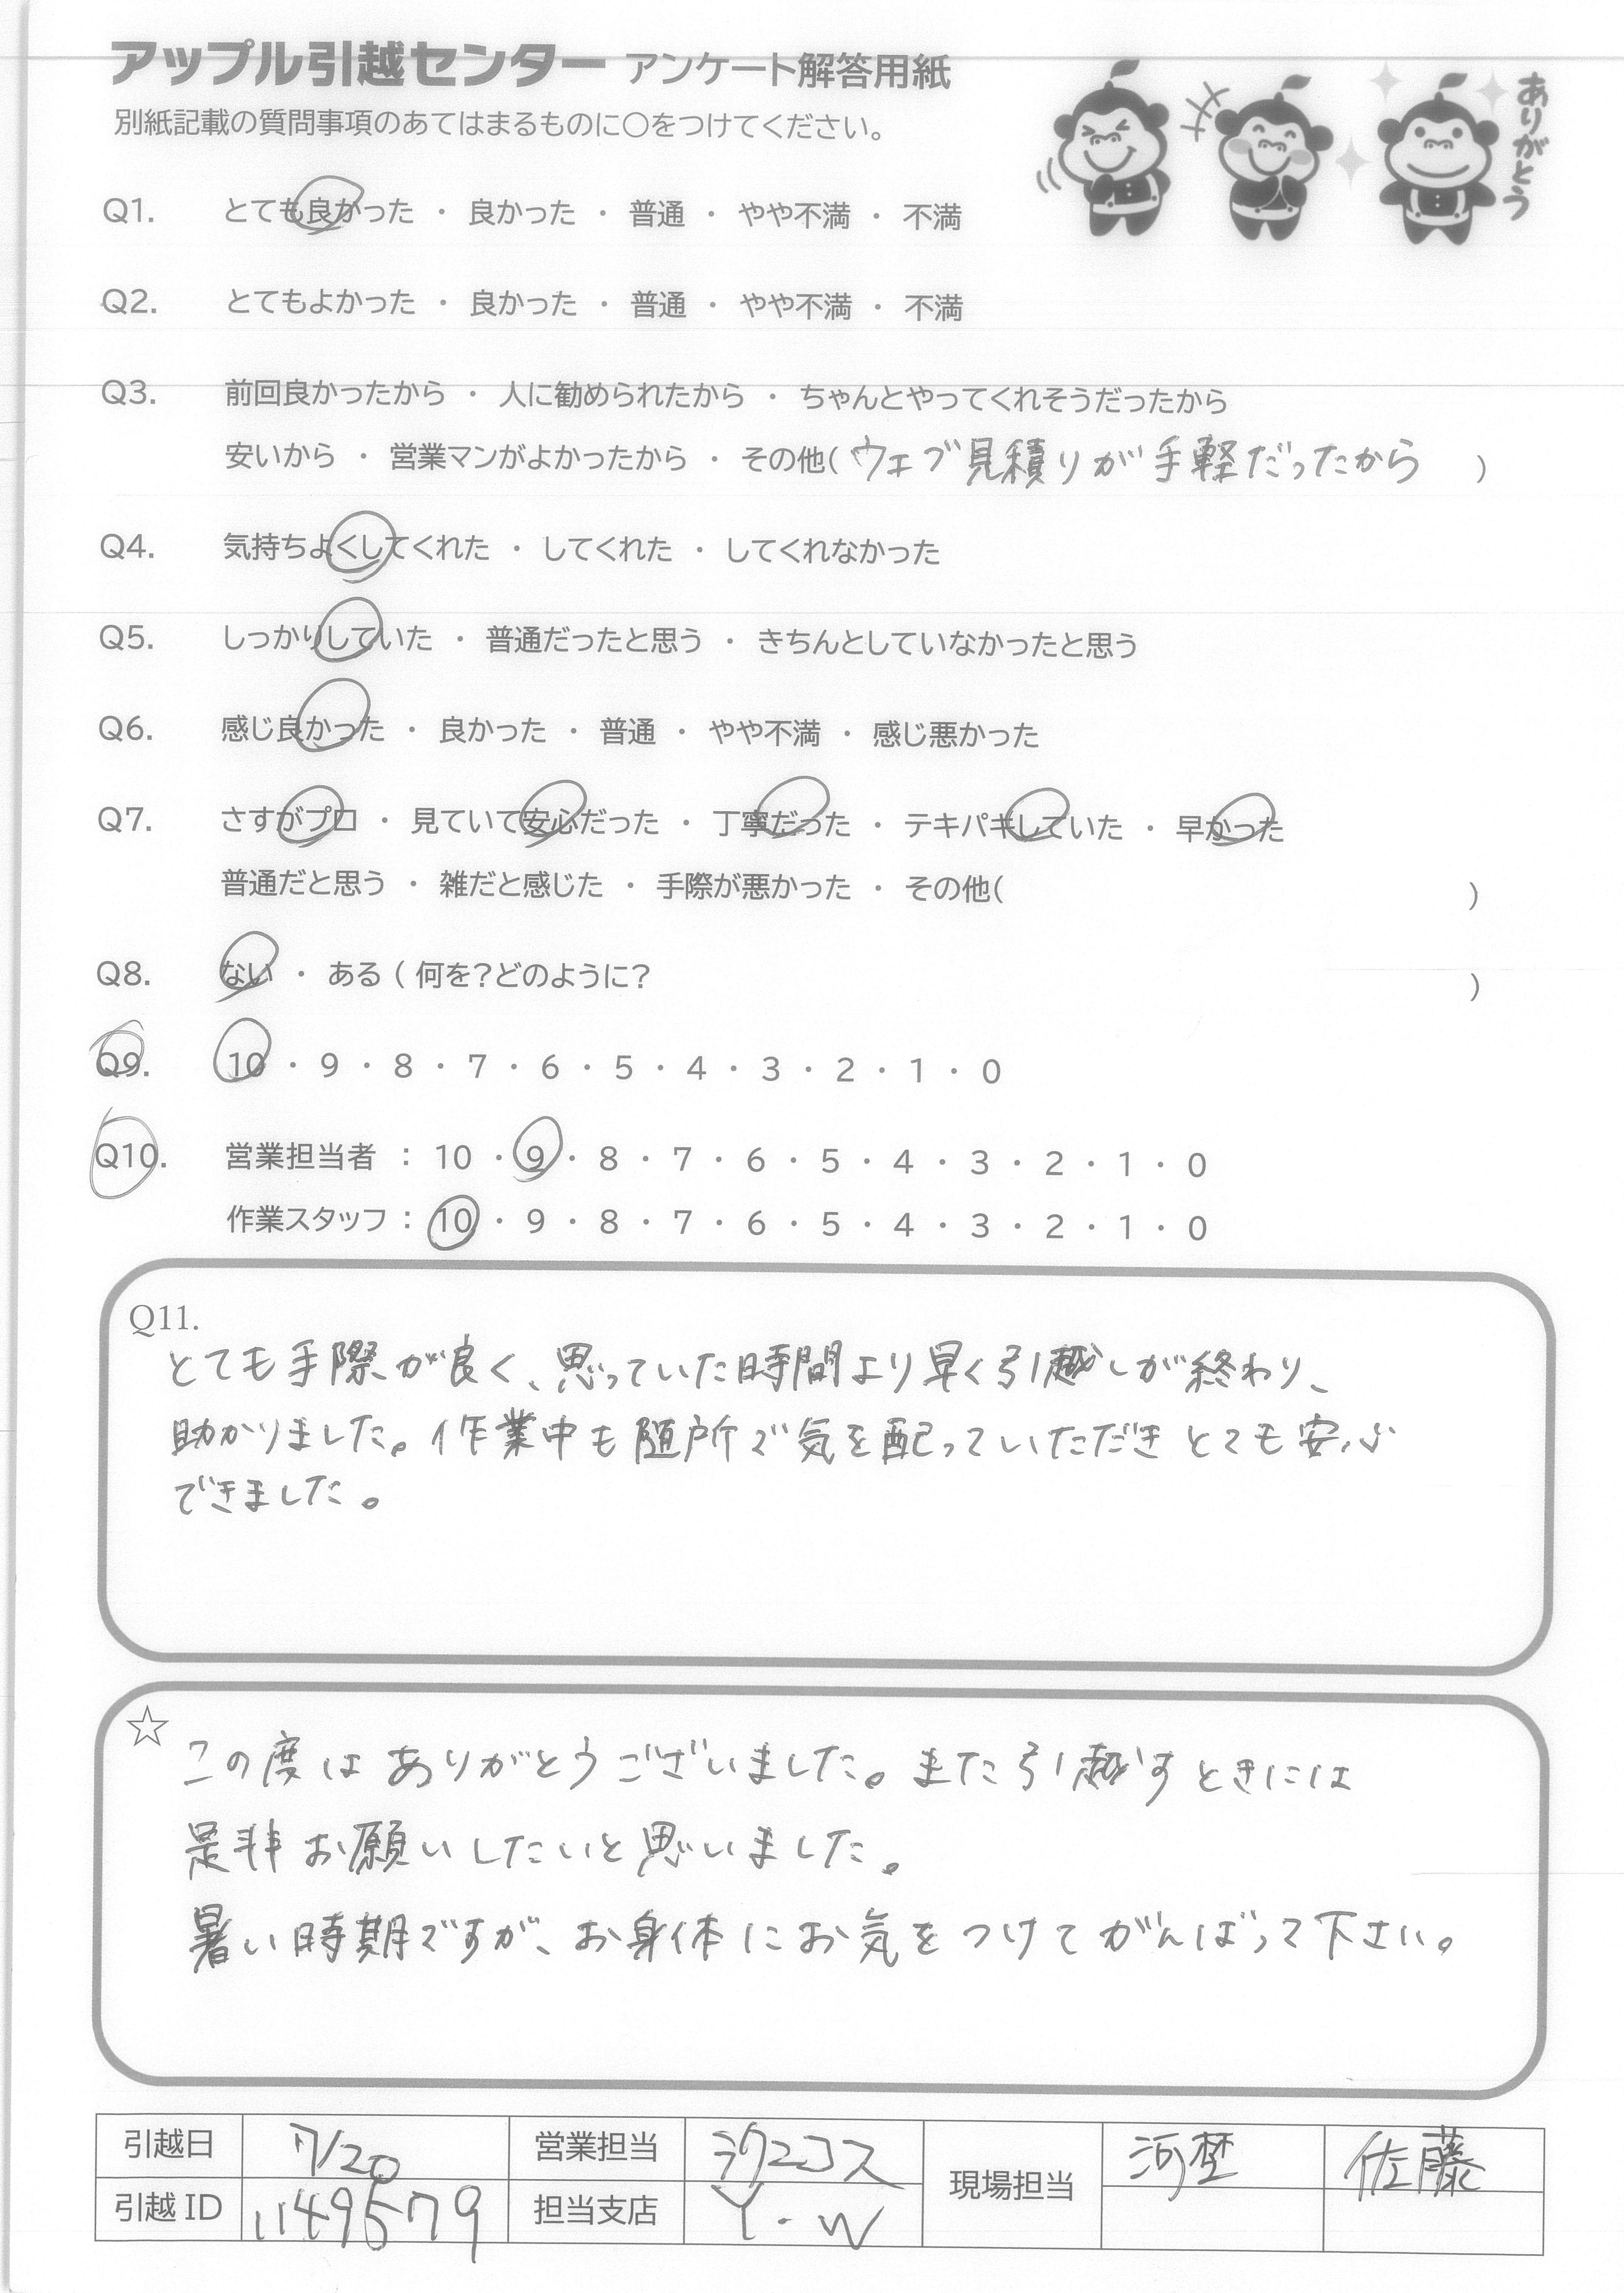 アップル引越センター アンケート解答用紙
別紙記載の質問事項のあてはまるものに○をつけてください。
ありがとう
Q1. とても良かった ・ 良かった ・ 普通 ・ やや不満 ・ 不満
Q2. とてもよかった ・ 良かった ・ 普通 ・ やや不満 ・ 不満
Q3. 前回良かったから ・ 人に勧められたから ・ ちゃんとやってくれそうだったから
安いから ・ 営業マンがよかったから ・ その他( ウェブ見積りが手軽だったから )
Q4. 気持ちよくしてくれた ・ してくれた ・ してくれなかった
Q5. しっかりしていた ・ 普通だったと思う ・ きちんとしていなかったと思う
Q6. 感じ良かった ・ 良かった ・ 普通 ・ やや不満 ・ 感じ悪かった
Q7. さすがプロ ・ 見ていて安心だった ・ 丁寧だった ・ テキパキしていた ・ 早かった
普通だと思う ・ 雑だと感じた ・ 手際が悪かった ・ その他( )
Q8. ない ・ ある ( 何を?どのように? )
Q9. 10 ・ 9 ・ 8 ・ 7 ・ 6 ・ 5 ・ 4 ・ 3 ・ 2 ・ 1 ・ 0
Q10. 営業担当者 : 10 ・ 9 ・ 8 ・ 7 ・ 6 ・ 5 ・ 4 ・ 3 ・ 2 ・ 1 ・ 0
作業スタッフ : 10 ・ 9 ・ 8 ・ 7 ・ 6 ・ 5 ・ 4 ・ 3 ・ 2 ・ 1 ・ 0
Q11.
とても手際が良く、思っていた時間より早く引越しが終わり、
助かりました。作業中も随所で気を配っていただきとても安心
できました。
☆
この度はありがとうございました。また引越すときには
是非お願いしたいと思いました。
暑い時期ですが、お身体にお気をつけてがんばって下さい。
引越日 7/20 営業担当 現場担当 河埜 佐藤
引越ID 1149579 担当支店 Y・W